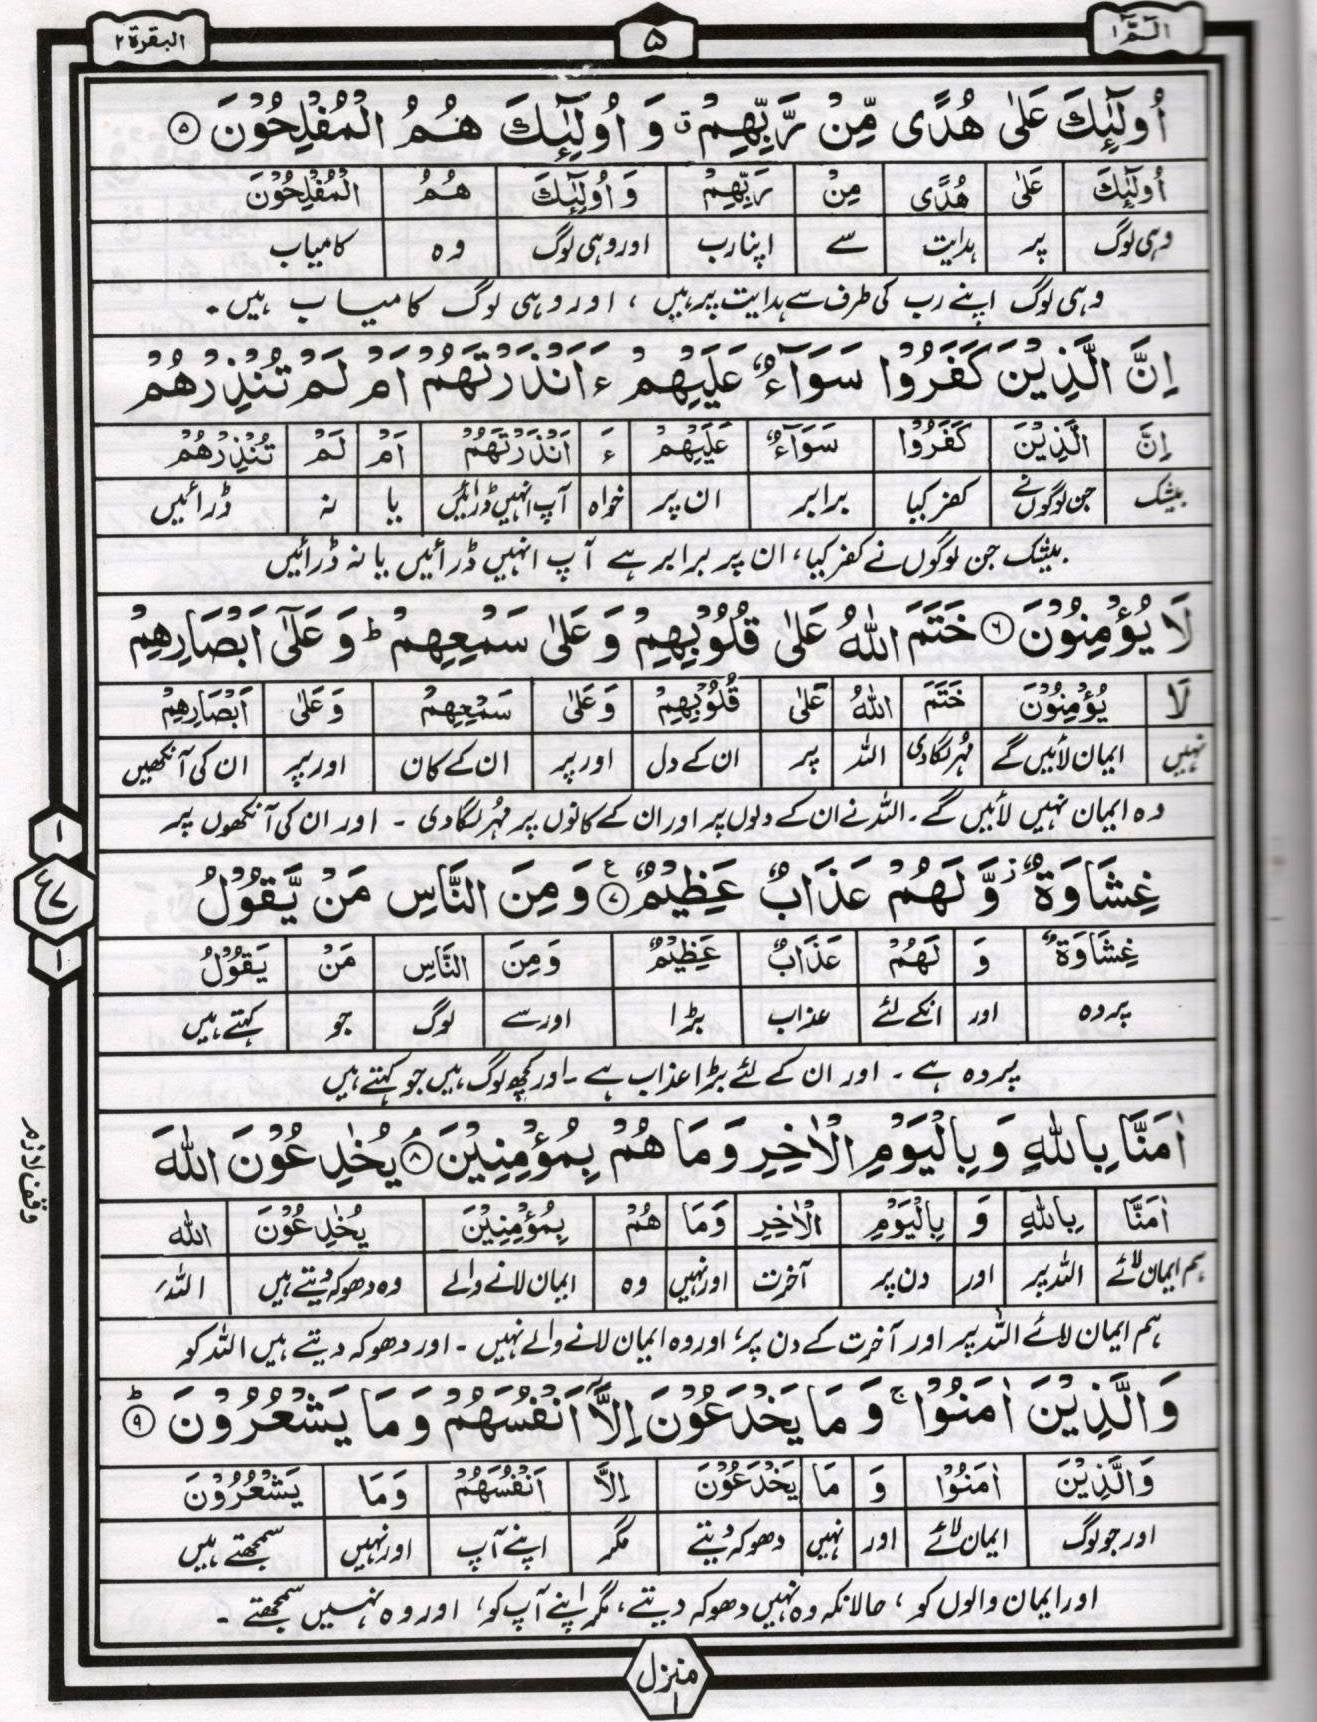 الٓمّٓ ۱ ۵ البقرة ۲
اُولٰٓئِكَ عَلٰى هُدًى مِّنْ رَّبِّهِمْ ق وَ اُولٰٓئِكَ هُمُ الْمُفْلِحُوْنَ ۵
اُولٰٓئِكَ عَلٰى هُدًى مِنْ رَبِّهِمْ وَ اُولٰٓئِكَ هُمُ الْمُفْلِحُوْنَ
وہی لوگ پر ہدایت سے اپنا رب اور وہی لوگ وہ کامیاب
وہی لوگ اپنے رب کی طرف سے ہدایت پر ہیں ، اور وہی لوگ کامیاب ہیں ۔
اِنَّ الَّذِيْنَ كَفَرُوْا سَوَآءٌ عَلَيْهِمْ ءَاَنْذَرْتَهُمْ اَمْ لَمْ تُنْذِرْهُمْ
اِنَّ الَّذِيْنَ كَفَرُوْا سَوَآءٌ عَلَيْهِمْ ءَ اَنْذَرْتَهُمْ اَمْ لَمْ تُنْذِرْهُمْ
بیشک جن لوگوں نے کفر کیا برابر ان پر خواہ آپ انہیں ڈرائیں یا نہ ڈرائیں
بیشک جن لوگوں نے کفر کیا ، ان پر برابر ہے آپ انہیں ڈرائیں یا نہ ڈرائیں
لَا يُؤْمِنُوْنَ ۶ خَتَمَ اللّٰهُ عَلٰى قُلُوْبِهِمْ وَ عَلٰى سَمْعِهِمْ ط وَ عَلٰٓى اَبْصَارِهِمْ
لَا يُؤْمِنُوْنَ خَتَمَ اللّٰهُ عَلٰى قُلُوْبِهِمْ وَعَلٰى سَمْعِهِمْ وَعَلٰى اَبْصَارِهِمْ
نہیں ایمان لائیں گے مہر لگادی اللہ پر ان کے دل اور پر ان کے کان اور پر ان کی آنکھیں
وہ ایمان نہیں لائیں گے ۔ اللہ نے ان کے دلوں پر اور ان کے کانوں پر مُہر لگادی ۔ اور ان کی آنکھوں پر
غِشَاوَةٌ ز وَّ لَهُمْ عَذَابٌ عَظِيْمٌ ۷ ع وَ مِنَ النَّاسِ مَنْ يَّقُوْلُ
غِشَاوَةٌ وَ لَهُمْ عَذَابٌ عَظِيْمٌ وَمِنَ النَّاسِ مَنْ يَقُوْلُ
پردہ اور انکے لئے عذاب بڑا اور سے لوگ جو کہتے ہیں
پردہ ہے ۔ اور ان کے لئے بڑا عذاب ہے ۔ اور کچھ لوگ ہیں جو کہتے ہیں
۱
ع ۷
۱
اٰمَنَّا بِاللّٰهِ وَ بِالْيَوْمِ الْاٰخِرِ وَ مَا هُمْ بِمُؤْمِنِيْنَ ۸ م يُخٰدِعُوْنَ اللّٰهَ
اٰمَنَّا بِاللّٰهِ وَ بِالْيَوْمِ الْاٰخِرِ وَمَا هُمْ بِمُؤْمِنِيْنَ يُخٰدِعُوْنَ اللّٰه
ہم ایمان لائے اللہ پر اور دن پر آخرت اور نہیں وہ ایمان لانے والے وہ دھوکہ دیتے ہیں اللہ
ہم ایمان لائے اللہ پر اور آخرت کے دن پر ، اور وہ ایمان لانے والے نہیں ۔ اور دھوکہ دیتے ہیں اللہ کو
وقف لازم
وَ الَّذِيْنَ اٰمَنُوْا ج وَ مَا يَخْدَعُوْنَ اِلَّآ اَنْفُسَهُمْ وَ مَا يَشْعُرُوْنَ ۹ ط
وَالَّذِيْنَ اٰمَنُوْا وَ مَا يَخْدَعُوْنَ اِلَّا اَنْفُسَهُمْ وَمَا يَشْعُرُوْنَ
اور جو لوگ ایمان لائے اور نہیں دھوکہ دیتے مگر اپنے آپ اور نہیں سمجھتے ہیں
اور ایمان والوں کو ، حالانکہ وہ نہیں دھوکہ دیتے ، مگر اپنے آپ کو ، اور وہ نہیں سمجھتے ۔
منزل ۱